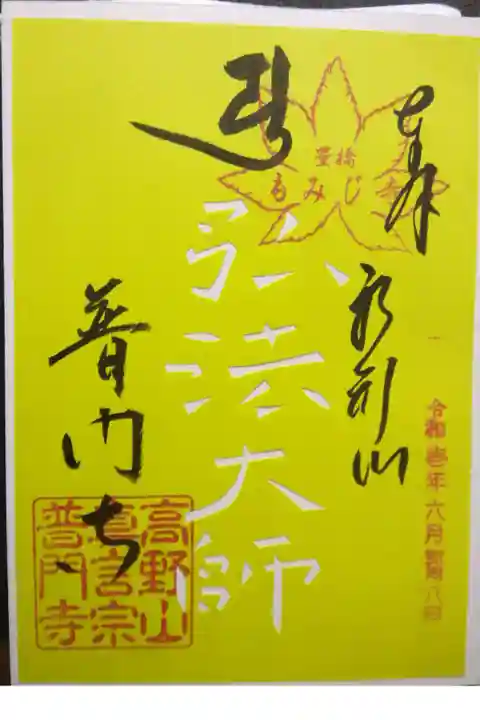 奉拝
船形山
令和壱年六月
豊橋
もみじ寺
弘法大師
普門寺
高野山
真言宗
普門寺